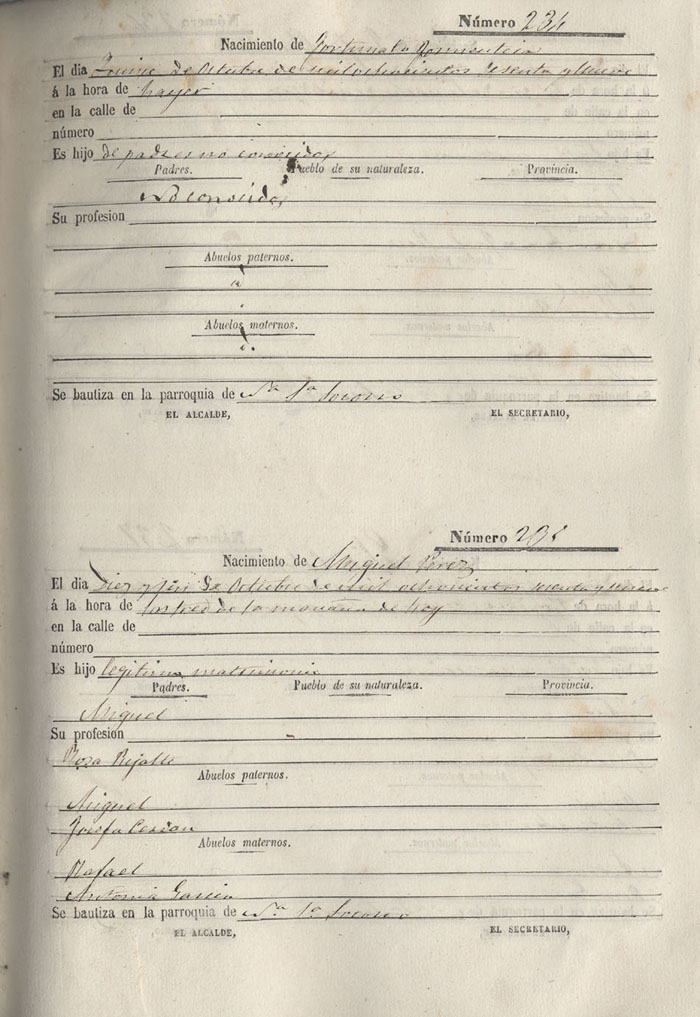 Número 234
Nacimiento de Fortunato
El dia Quince de Octubre de mil ochocientos sesenta y nueve
á la hora de hayer
en la calle de
número
Es hijo de padres no conocidos
Padres. Pueblo de su naturaleza. Provincia.
No conocidos
Su profesion
Abuelos paternos.
Abuelos maternos.
Se bautiza en la parroquia de Nª Sª Socorro
EL ALCALDE, EL SECRETARIO,
Número
Nacimiento de Miguel Perez
El dia Diez y de Octubre de mil ochocientos sesenta y nueve
á la hora de las tres de la mañana de hoy
en la calle de
número
Es hijo legitimo matrimonio
Padres. Pueblo de su naturaleza. Provincia.
Miguel
Su profesión
Roza
Abuelos paternos.
Miguel
Josefa
Abuelos maternos.
Rafael
Antonia Garcia
Se bautiza en la parroquia de Nª Sª Socorro
EL ALCALDE, EL SECRETARIO,